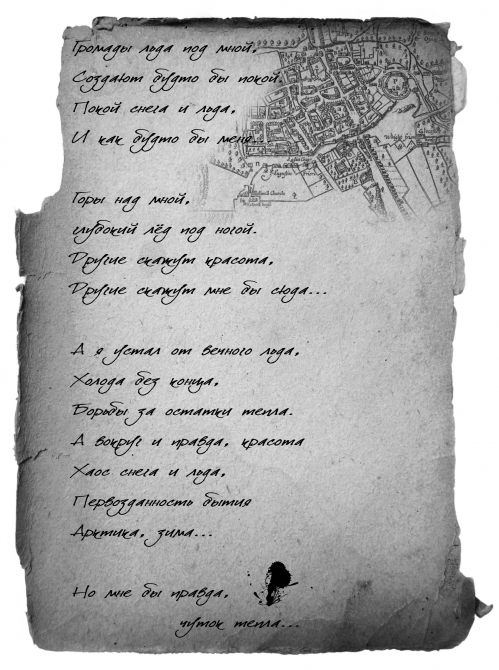 Громады льда под мной,
Создают будто бы покой
Покой снега и льда,
И как будто бы меня...
Горы над мной,
глубокий лёд под ногой.
Другие скажут красота,
Другие скажут мне бы сюда...
А я устал от вечного льда,
Холода без конца,
Борьбы за остатки тепла.
А вокруг и правда, красота
Хаос снега и льда,
Первозданность бытия
Арктика, зима...
Но мне бы правда,
чуток тепла...